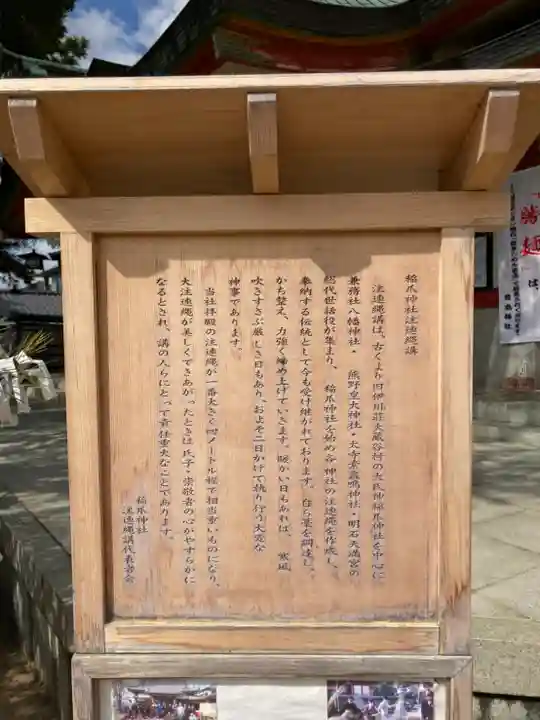 稲爪神社注連縄講
注連縄講は、古くより旧伊川荘大蔵谷村の大氏神稲爪神社を中心に
兼務社八幡神社・熊野皇大神社・大寺素盞嗚神社・明石天満宮の
総代世話役が集まり、稲爪神社を始め各神社の注連縄を作成し、
奉納する伝統として今も受け継がれております。自ら藁を調達し、
かち整え、力強く締め上げていきます。暖かい日もあれば、寒風
吹きすさぶ厳しき日もあり、およそ二日かけて執り行う大変な
神事であります。
当社拝殿の注連縄が一番大きく四メートル程で相当重いものになり、
大注連縄が美しくできあがったときは氏子・崇敬者の心がやすらかに
なるとされ、講の人らにとって責任重大なことであります。
稲爪神社
注連縄講代表者会